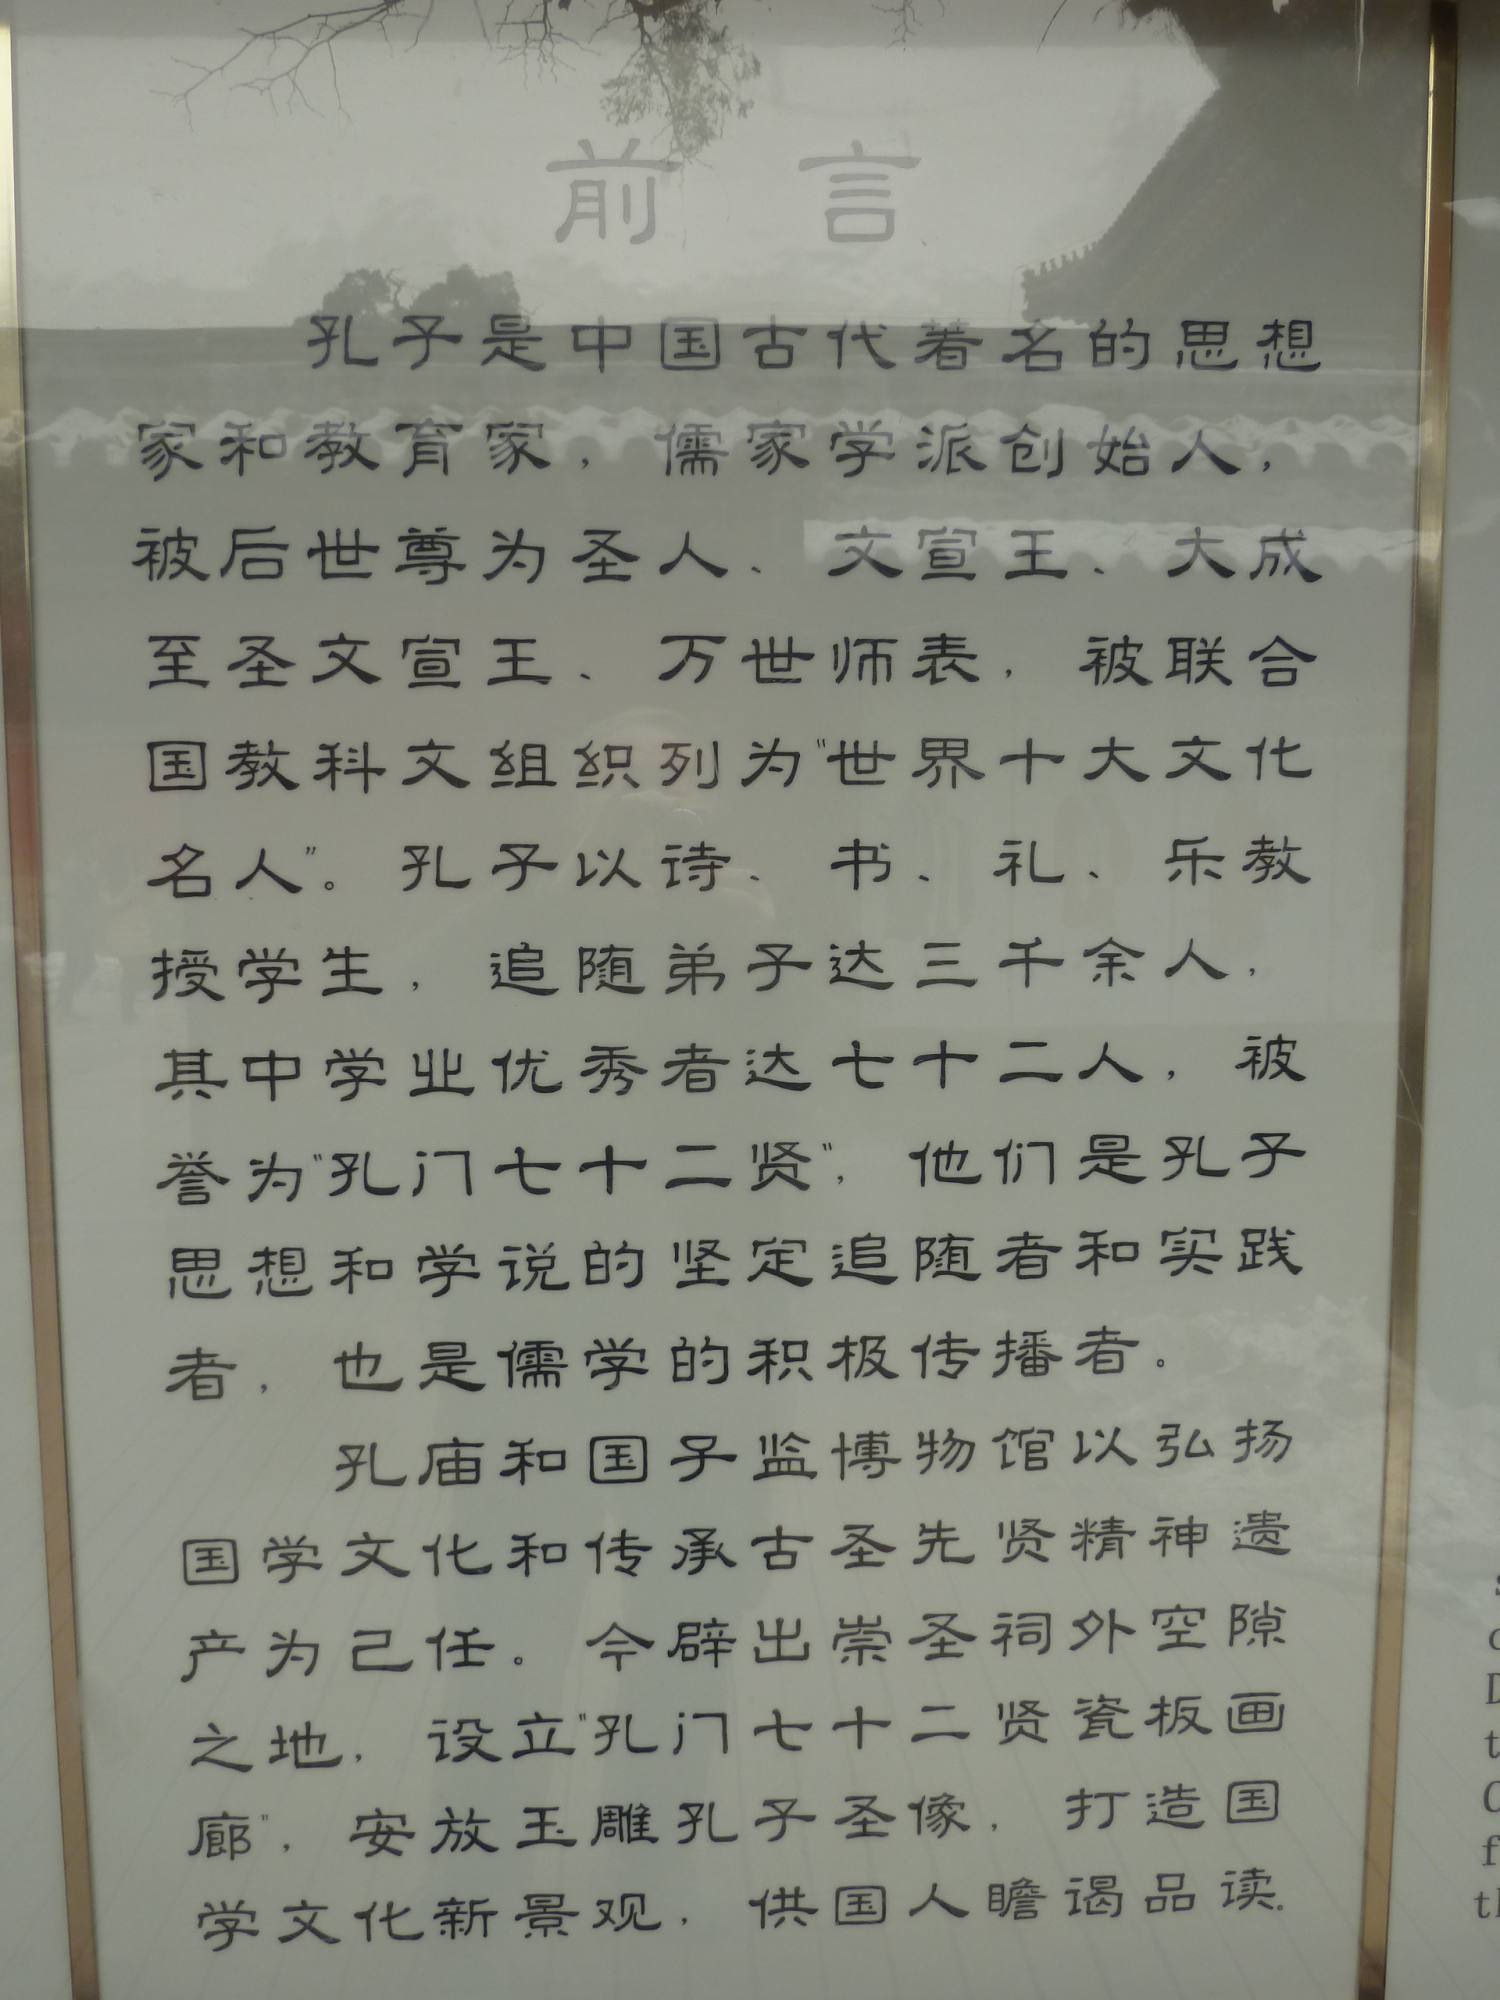 前言
孔子是中国古代著名的思想
家和教育家，儒家学派创始人，
被后世尊为圣人、文宣王、大成
至圣文宣王、万世师表，被联合
国教科文组织列为“世界十大文化
名人”。孔子以诗、书、礼、乐教
授学生，追随弟子达三千余人，
其中学业优秀者达七十二人，被
誉为“孔门七十二贤”，他们是孔子
思想和学说的坚定追随者和实践
者，也是儒学的积极传播者。
孔庙和国子监博物馆以弘扬
国学文化和传承古圣先贤精神遗
产为己任。今辟出崇圣祠外空隙
之地，设立“孔门七十二贤瓷板画
廊”，安放玉雕孔子圣像，打造国
学文化新景观，供国人瞻谒品读。